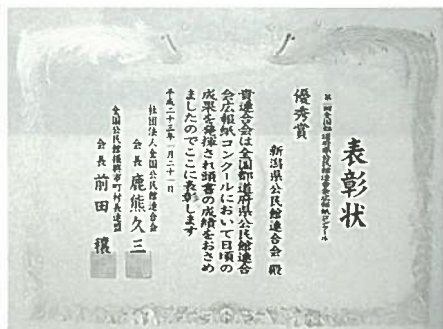 表彰状
第一回全国都道府県公民館連合会広報紙コンクール
優秀賞
新潟県公民館連合会 殿
貴連合会は全国都道府県公民館連合
会広報紙コンクールにおいて日頃の
成果を発揮され頭書の成績をおさめ
ましたのでここに表彰します
平成二十三年一月二十一日
社団法人全国公民館連合会
会長 鹿熊久三
全国公民館振興市町村長連盟
会長 前田 穰